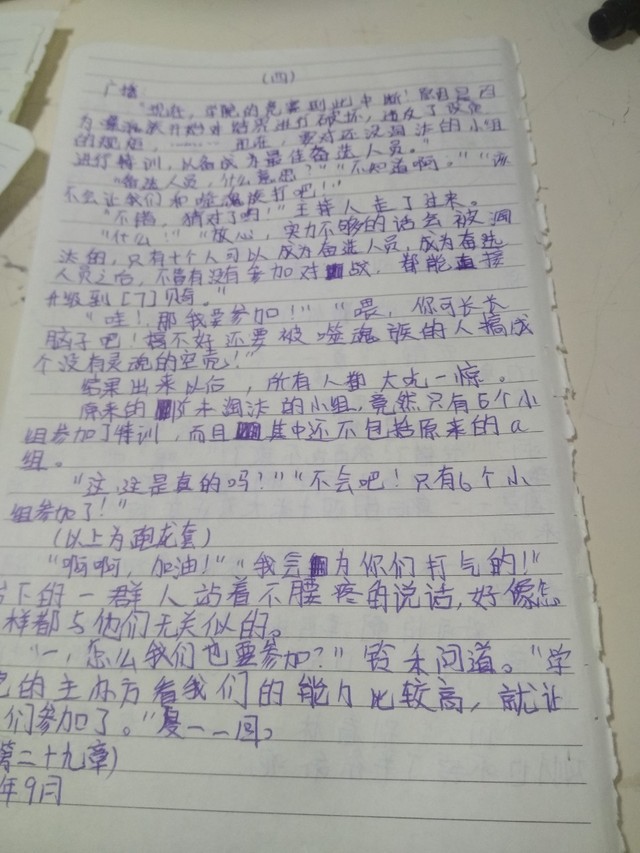 (四)
广播:
"现在,学院的竞赛到此中断!原因是因
为噬魂族开始对结界进行破坏,违反了改使
的规矩,………而在,要对还没淘汰的小组
进行特训,以备成为最佳备选人员。"
"备选人员,什么意思?""不知道啊。""该
不会让我们和噬魂族打吧!"
"不错,猜对了哟!"主持人走了过来。
"什么!""放心,实力不够的话会被淘
汰的,只有十个人可以成为备选人员,成为备选
人员之后,不管有没有参加对战,都能直接
升级到[7]贝奇。"
"哇!那我要参加!""喂,你可长长
脑子吧!搞不好还要被噬魂族的人搞成
个没有灵魂的空壳!"
结果出来以后,所有人都大吃一惊。
原来的 未淘汰的小组,竟然只有6个小
组参加了特训,而且其中还不包括原来的a
组。
"这,这是真的吗?""不会吧!只有6个小
组参加了!"
(以上为跑龙套)
"啊啊,加油!""我会为你们打气的!"
台下的一群人站着不腰疼的说话,好像怎
样都与他们无关似的。
"一,怎么我们也要参加?"铃禾问道。"学
院的主办方看我们的能力比较高,就让
们参加了。"夏一一回。
第二十九章)
年9月